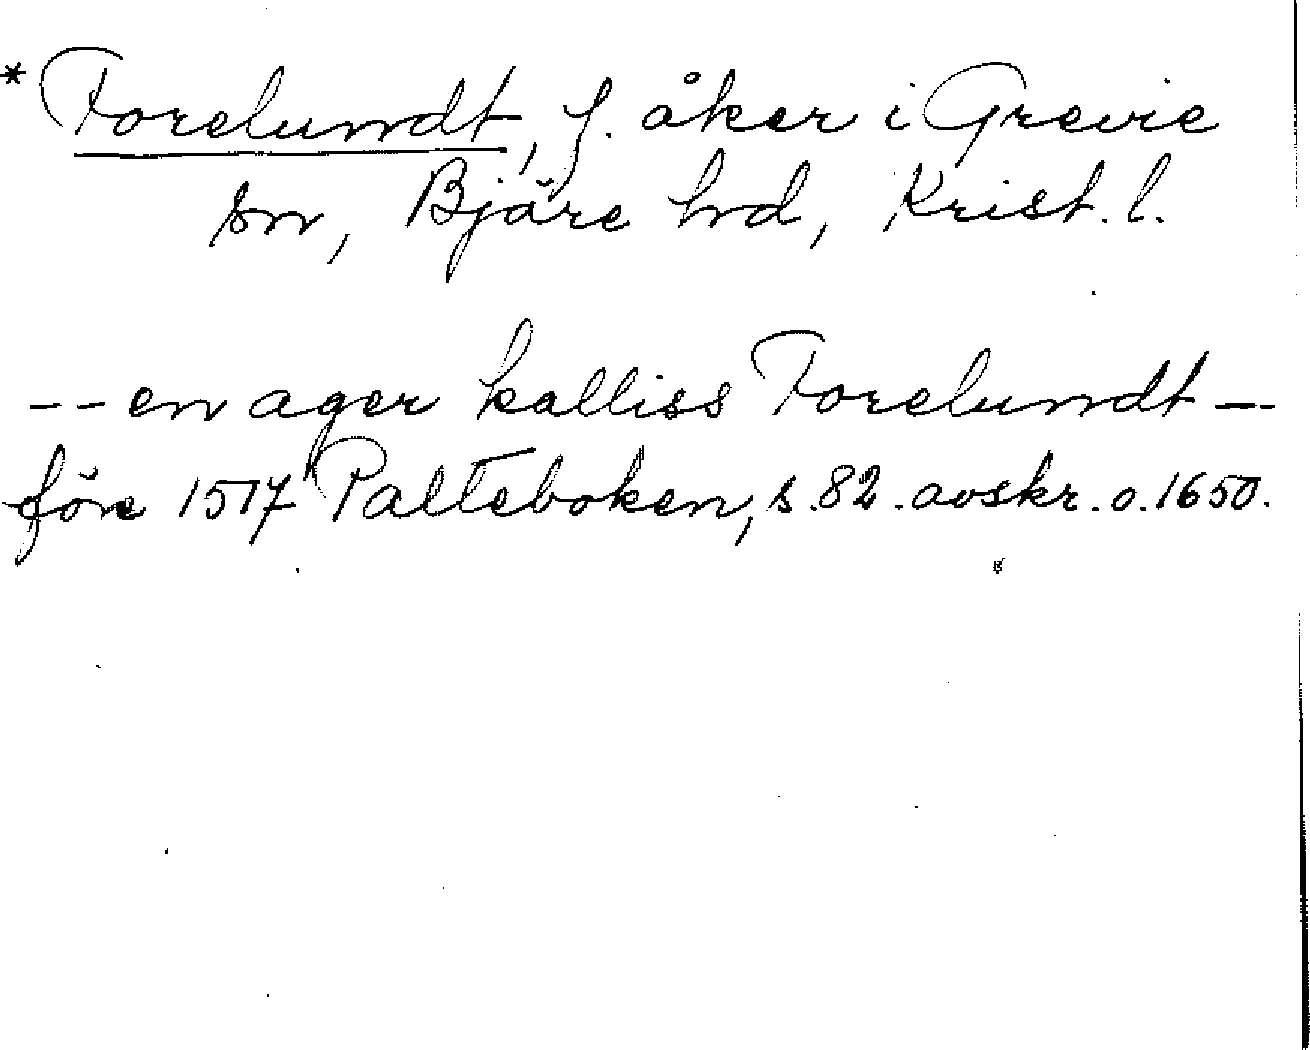 *Forelundt, f. åker i Grevie
sn, Bjäre hd, Krist. l.
-- en ager kalliss Forelundt --
före 1517 Palteboken, s. 82. avskr. o. 1650.